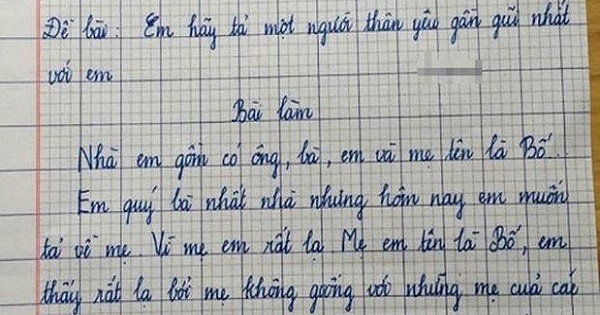 Đề bài: Em hãy tả một người thân yêu gần gũi nhất
với em
Bài làm
Nhà em gồm có ông, bà, em và mẹ tên là Bố.
Em quý bà nhất nhà nhưng hôm nay em muốn
tả về mẹ. Vì mẹ em rất lạ Mẹ em tên là Bố, em
thấy rất lạ bởi mẹ không giống với những mẹ của các